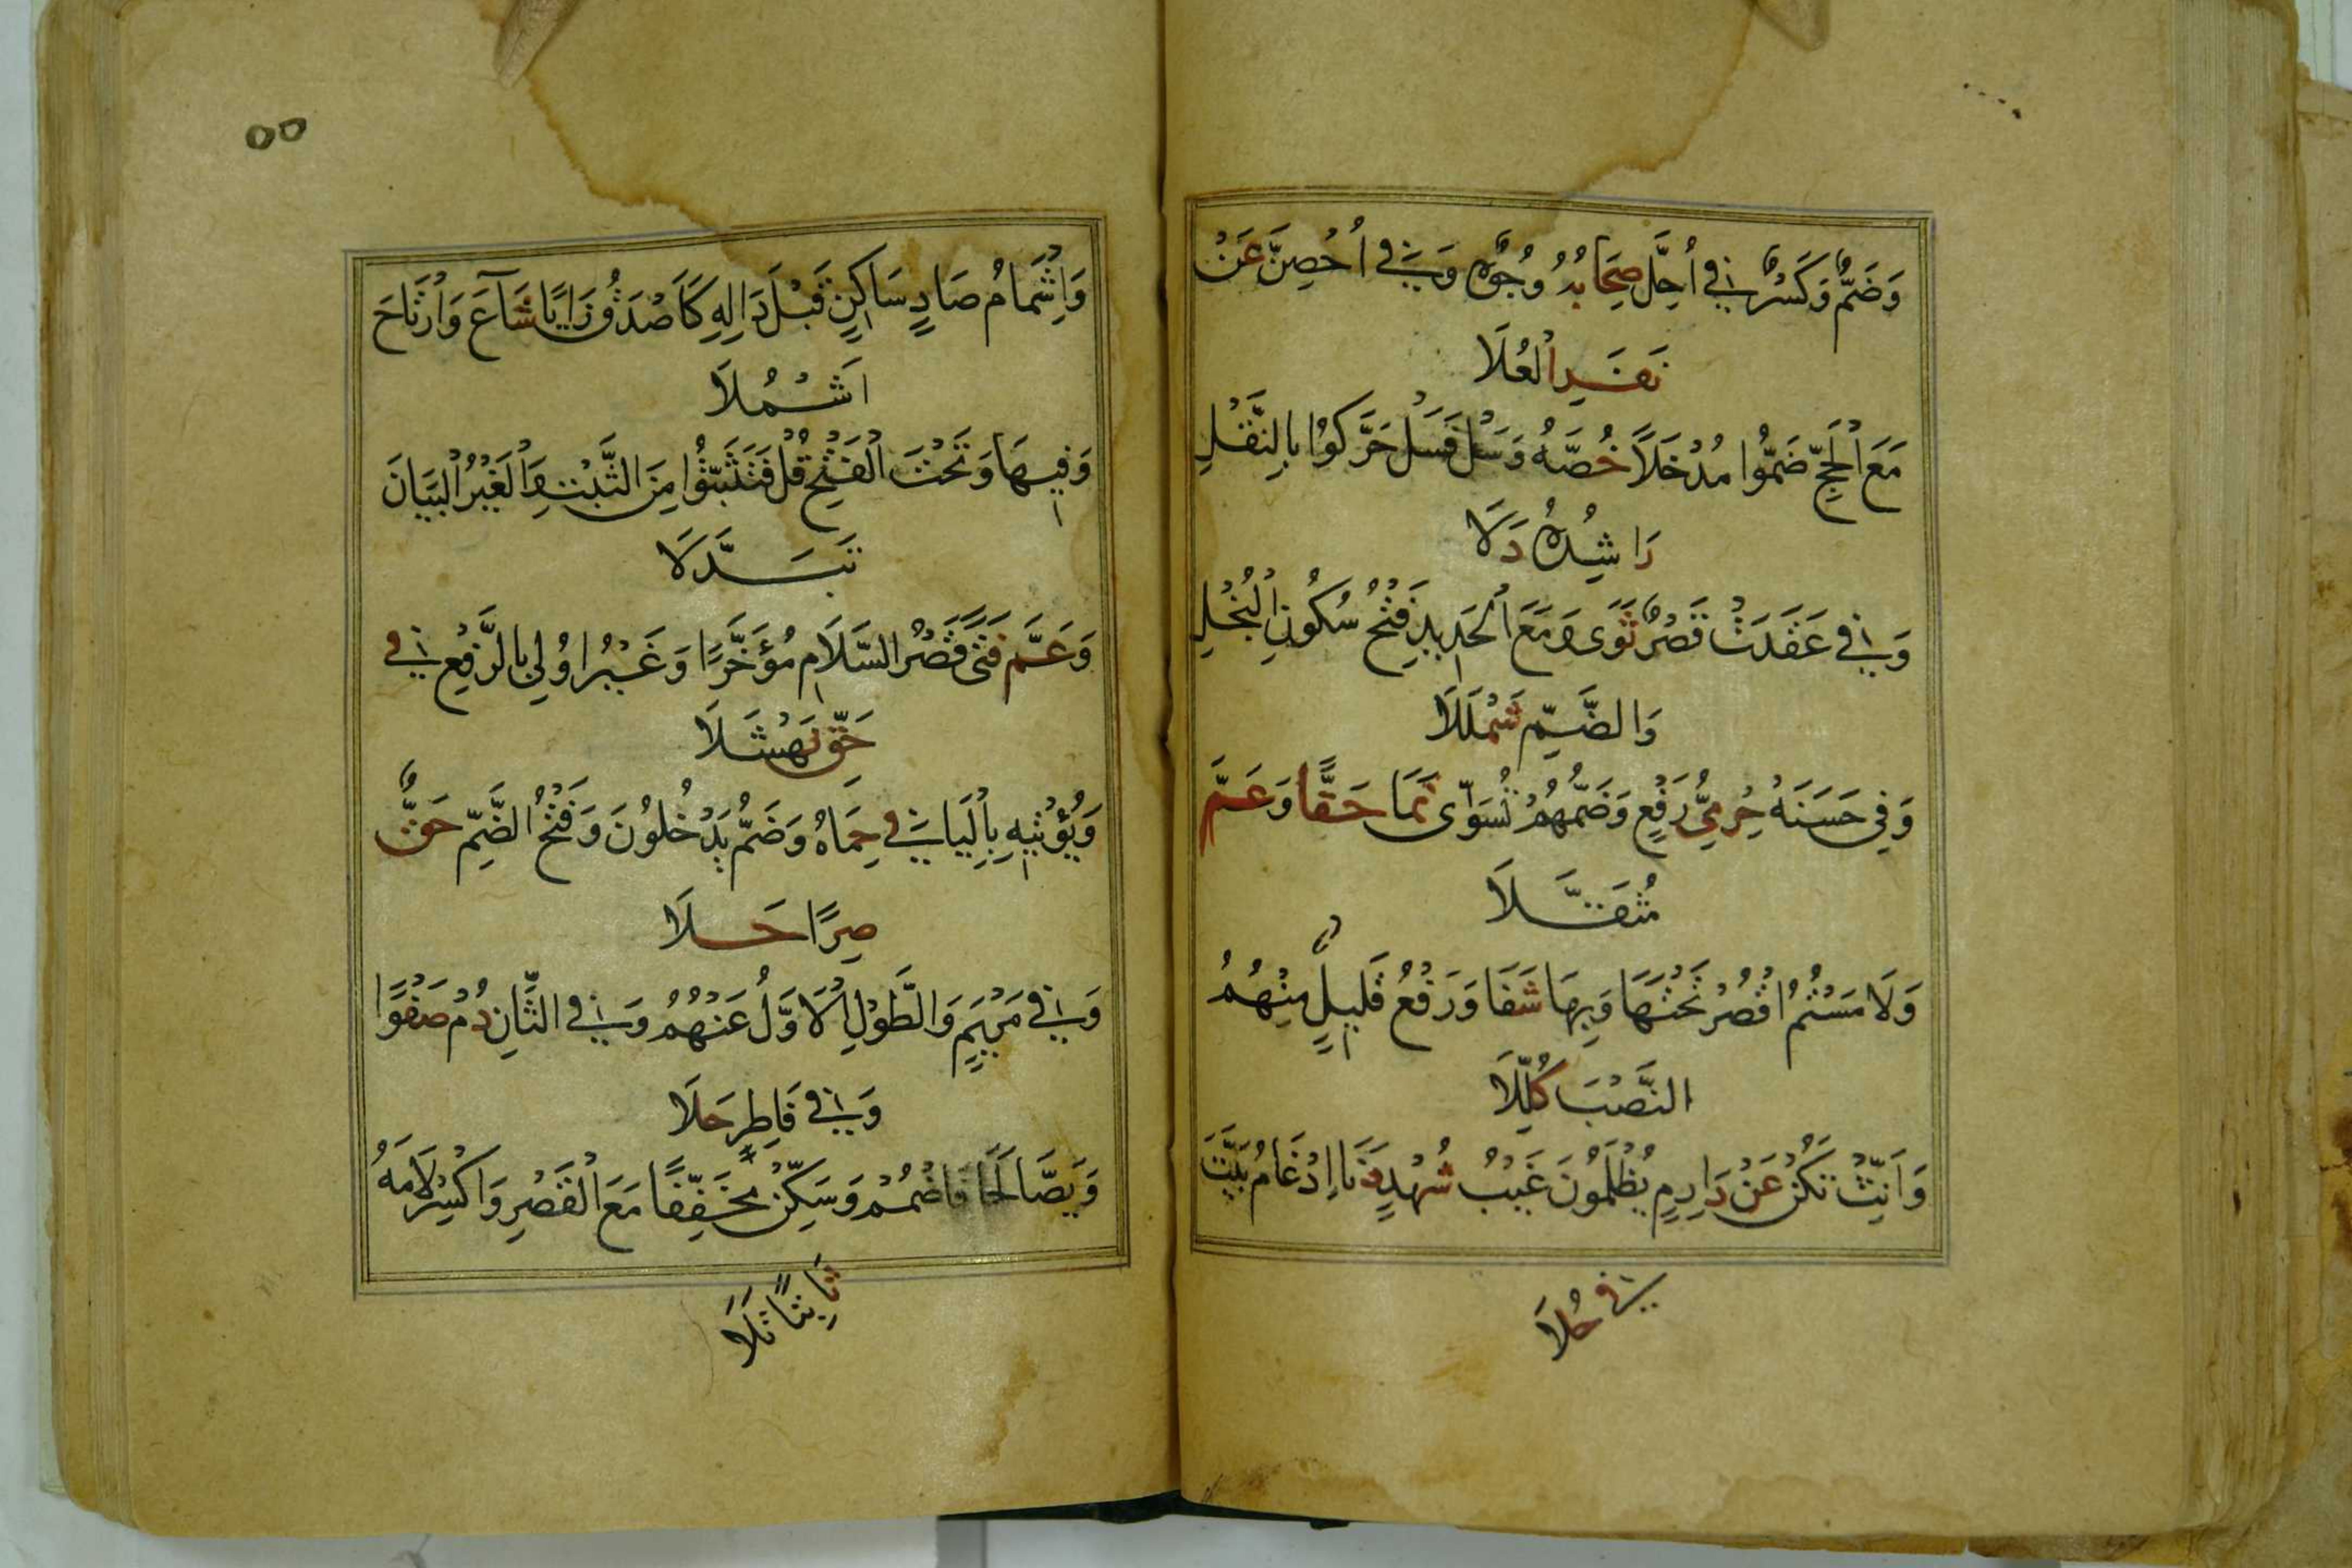 وَضَمٌّ وَكَسْرٌ فِي أُحِلَّ صِحَابُهُ وُجُوهٌ وَفِي أُحْصِنَّ عَنْ
نَفَرِ الْعُلَا
مَعَ الْحَجِّ ضَمُّوا مُدْخَلًا خُصَّهُ وَسَلْ فَسَلْ حَرَّكُوا بِالنَّقْلِ
رَاشِدُهُ دَلَا
وَفِي عَقَدَتْ قَصْرٌ ثَوَى وَمَعَ الْحَدِيدِ فَتْحُ سُكُونِ الْبُخْلِ
وَالضَّمِّ شَمْلَلَا
وَفِي حَسَنَهْ حِرْمِيُّ رَفْعٍ وَضَمُّهُمْ تُسَوَّى نَمَا حَقًّا وَعَمَّ
مُثَقَّلَا
وَلَامَسْتُمُ اقْصُرْ تَحْتَهَا وَبِهَا شَفَا وَرَفْعُ قَلِيلٍ مِنْهُمُ
النَّصْبَ كُلِّلَا
وَأَنِّثْ تَكُنْ عَنْ دَارِمٍ يُظْلَمُونَ غَيْبُ شُهْدٍ دَنَا إِدْغَامُ بَيَّتَ
فِي حُلَا
٥٥
وَإِشْمَامُ صَادٍ سَاكِنٍ قَبْلَ دَالِهِ كَأَصْدَقُ زَايًا شَاعَ وَارْتَاحَ
اَشْمُلَا
وَفِيهَا وَتَحْتَ الْفَتْحِ قُلْ فَتَثَبَّتُوا مِنَ الثَّبْتِ وَالْغَيْرُ الْبَيَانَ
تَبَدَّلَا
وَعَمَّ فَتًى قَصْرُ السَّلَامِ مُؤَخَّرًا وَغَيْرُ اُولِي بِالرَّفْعِ فِي
حَقِّ نَهْشَلَا
وَيُؤْتِيهِ بِالْيَا فِي حِمَاهُ وَضَمُّ يَدْخُلُونَ وَفَتْحُ الضَّمِّ حَقٌّ
صِرًا حَلَا
وَفِي مَرْيَمٍ وَالطَّوْلِ الْاَوَّلُ عَنْهُمُ وَفِي الثَّانِ دُمْ صَفْوًا
وَفِي فَاطِرٍ حَلَا
وَيَصَّالَحَا فَاضْمُمْ وَسَكِّنْ مُخَفِّفًا مَعَ الْقَصْرِ وَاكْسِرْ لَامَهُ
ثَابِتًا تَلَا